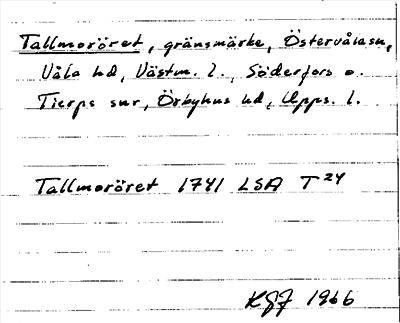 Tallmoröret, gränsmärke, Östervåla sn,
Våla hd, Västm. l., Söderfors o.
Tierps snr, Örbyhus hd, Upps. l.
Tallmoröret 1741 LSA T 24
KGJ 1966